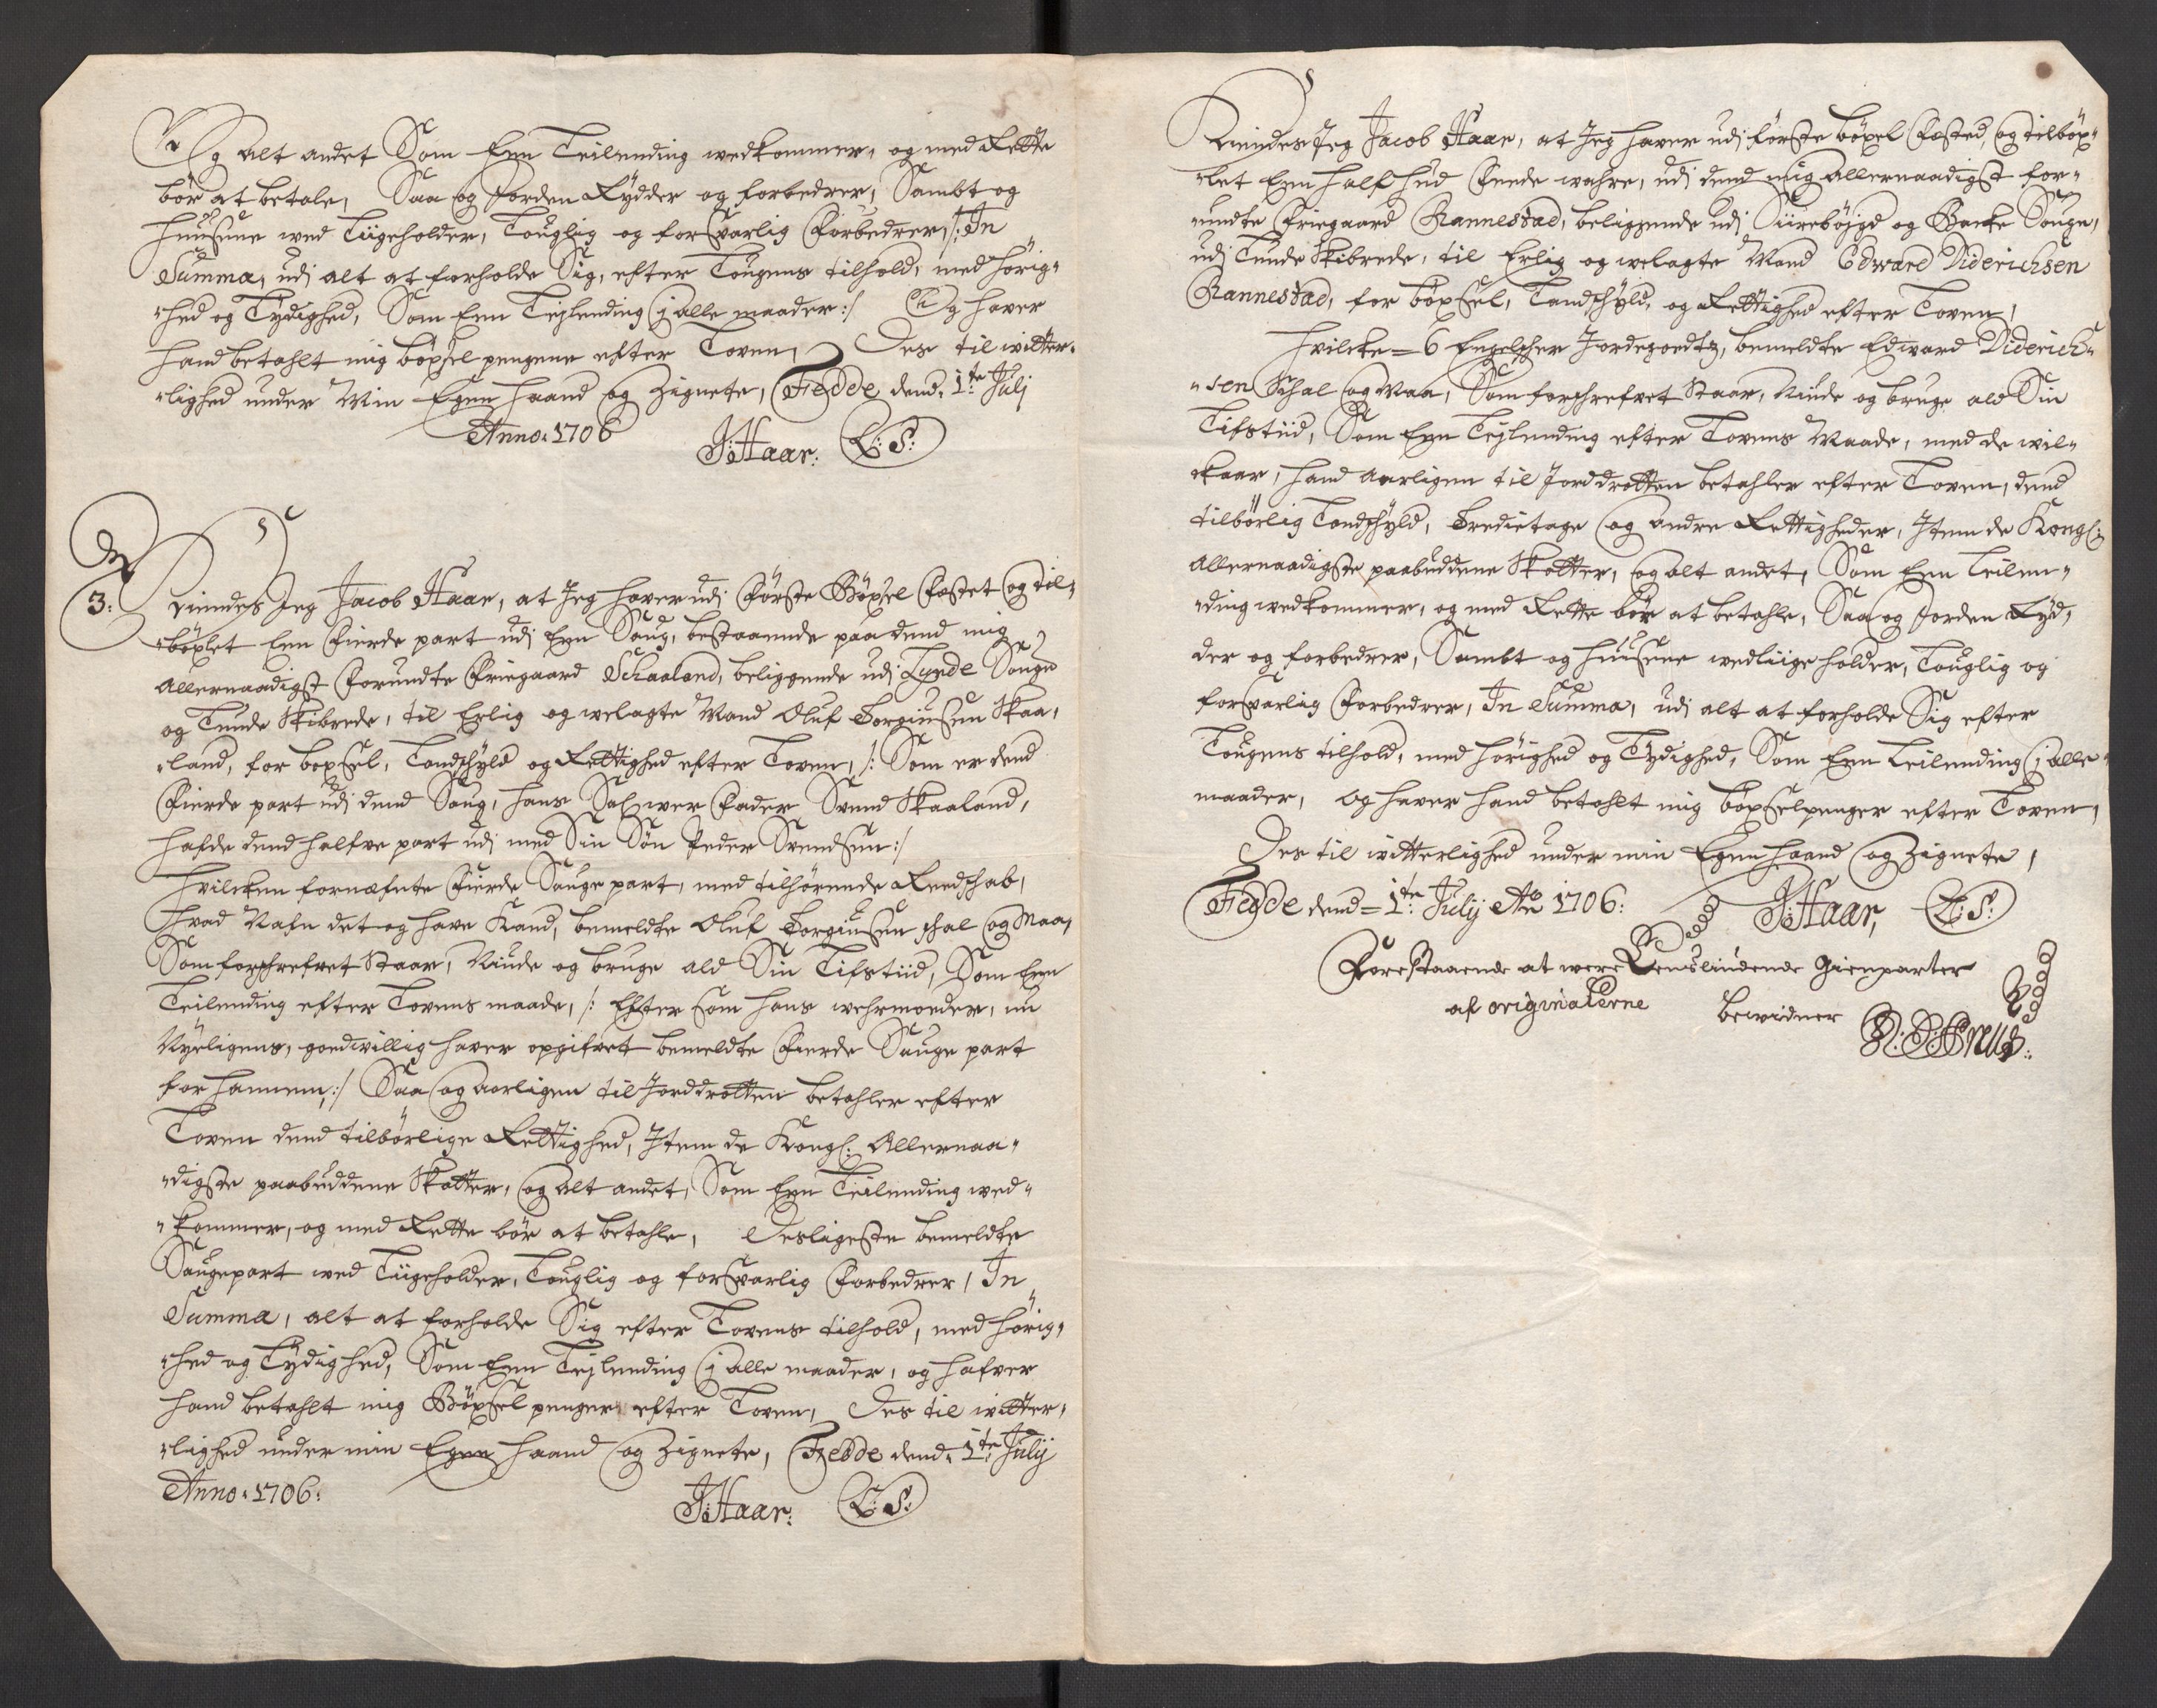 Og alt andet Som Een Leilending vedkommer, og med Rette
bör at betale, Saa og Jorden Rydder og forbedrer, Sambt og
Huusene ved Liigeholder, Louglig og forsvarlig Forbedrer /: In
Summa, udj alt at forholde Sig, efter Lougens tilhold, med hörig-
-hed og Lydighed, Som Een Lejlending j alle maader :/ Og haver
hand betahlt mig böxsel pengene efter Loven, Des til witter-
-lighed under Min Egen haand og Zignete, Fedde dend 1te Julj
Anno 1706 J: Haar: L: S:
3: Kiendes Jeg Jacob Haar, at Jeg haver udj Förste Böxel Fæstet og til-
-böxlet Een Fierde part udj Een Saug, bestaaende paa dend mig
Allernaadigst Forundte Friegaard Schaaland, beliggende udj Lunde Sougn
og Lunde Skibrede, til Erlig og velagte Mand Oluf Torgiusen Skaa-
-land, for boxsel, Landschyld og Rettighed efter Loven, /: Som er dend
Fierde part udj dend Saug, hans Sal wer Fader Svend Skaaland,
hafde dend halfve part udj med Sin Sön Peder Svendsen :/
Hvilcken fornæfnte Fierde Sauge part, med tilhörende Reedschab,
hvad Nafn det og have Kand, bemeldte Oluf Torgiusen schal og Maa,
Som forschrefvet Staar, Niude og bruge ald Sin Lifstiid, Som Een
Leilending efter Lovens maade, /: Efter som hans wehrmoeder, nu
Nyeligens, goedvillig haver opgifvet bemeldte Fierde Sauge part
for hannem, :/ Saa og Aarligen til Jorddrotten betahler efter
Loven dend tilbörlige Rettighed, Item de Kongl: Allernaa-
-digste paabuddene Skatter, og Alt andet, Som Een Leilending ved-
-kommer, og med Rette bör at betahle, Desligeste bemeldte
Saugepart ved Liigeholder, Louglig og forsvarlig Forbedrer, In
Summa, alt at forholde Sig efter Lovens tilhold, med hörig-
-hed og Lydighed, Som Een Lejlending j alle maader, og hafver
hand betahlt mig Böxsel penger efter Loven, Des til witter-
-lighed under min Egen haand og Zignete, Fedde dend 1te Julij
Anno 1706: J: Haar: L: S:
Kiendes Jeg Jacob Haar, at Jeg haver udj förste böxel Fæsted, og tilböx-
-let Een half hud Feede wahre, udj dend mig allernaadigst for-
-undte Friegaard Rannestad, beliggende udj Siirebøjgd og Backe Sougn,
udj Lunde Skibrede, til Erlig og velagte Mand Edward Diderichsen
Rannestad, for böxsel, Landschyld, og Rettighed efter Loven,
Hvilcke 6 Engelscher Jordegoedtz, bemeldte Edward Diderich-
-sen Schal og Maa, Som forschrefvet Staar, Niude og bruge ald Sin
Lifstiid, Som Een Lejlending efter Lovens Maade, med de wil-
kaar, hand Aarligen til Jorddrotten betahler efter Loven, dend
tilbörlig Landschyld, Tredietage og andre Rettigheder, Item de Kongl:
Allernaadigste paabuddene Skatter, og alt andet, Som Een Leilen-
-ding vedkommer, og med Rette bör at betahle, Saa og Jorden Ryd-
der og forbedrer, Sambt og Huusene vedliige holder, Louglig og
forsvarlig Forbedrer, In Summa, udj alt at forholde Sig efter
Lougens tilhold, med hörighed og Lydighed, Som Een Leilending j alle
maader, og haver hand betahlt mig böxselpenger efter Loven,
Des til witterlighed under min Egen haand og Zignete,
Fedde dend 1te Julij Ao 1706: J: Haar, L: S:
Forestaaende at were Eenslindende gienparter
af originalerne bewidner